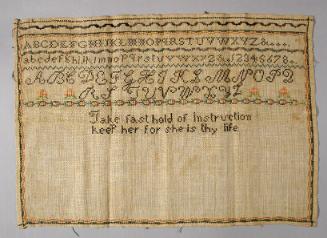 ABCDEFGHIJKLMNOPQRSTUVWXYZ&
abcdefghijklmnopqrstuvwxyz&12345678
ABCDEFGHIJKLMNOPQ
RSTUVWXYZ
Take fast hold of Instruction
keep her for she is thy life